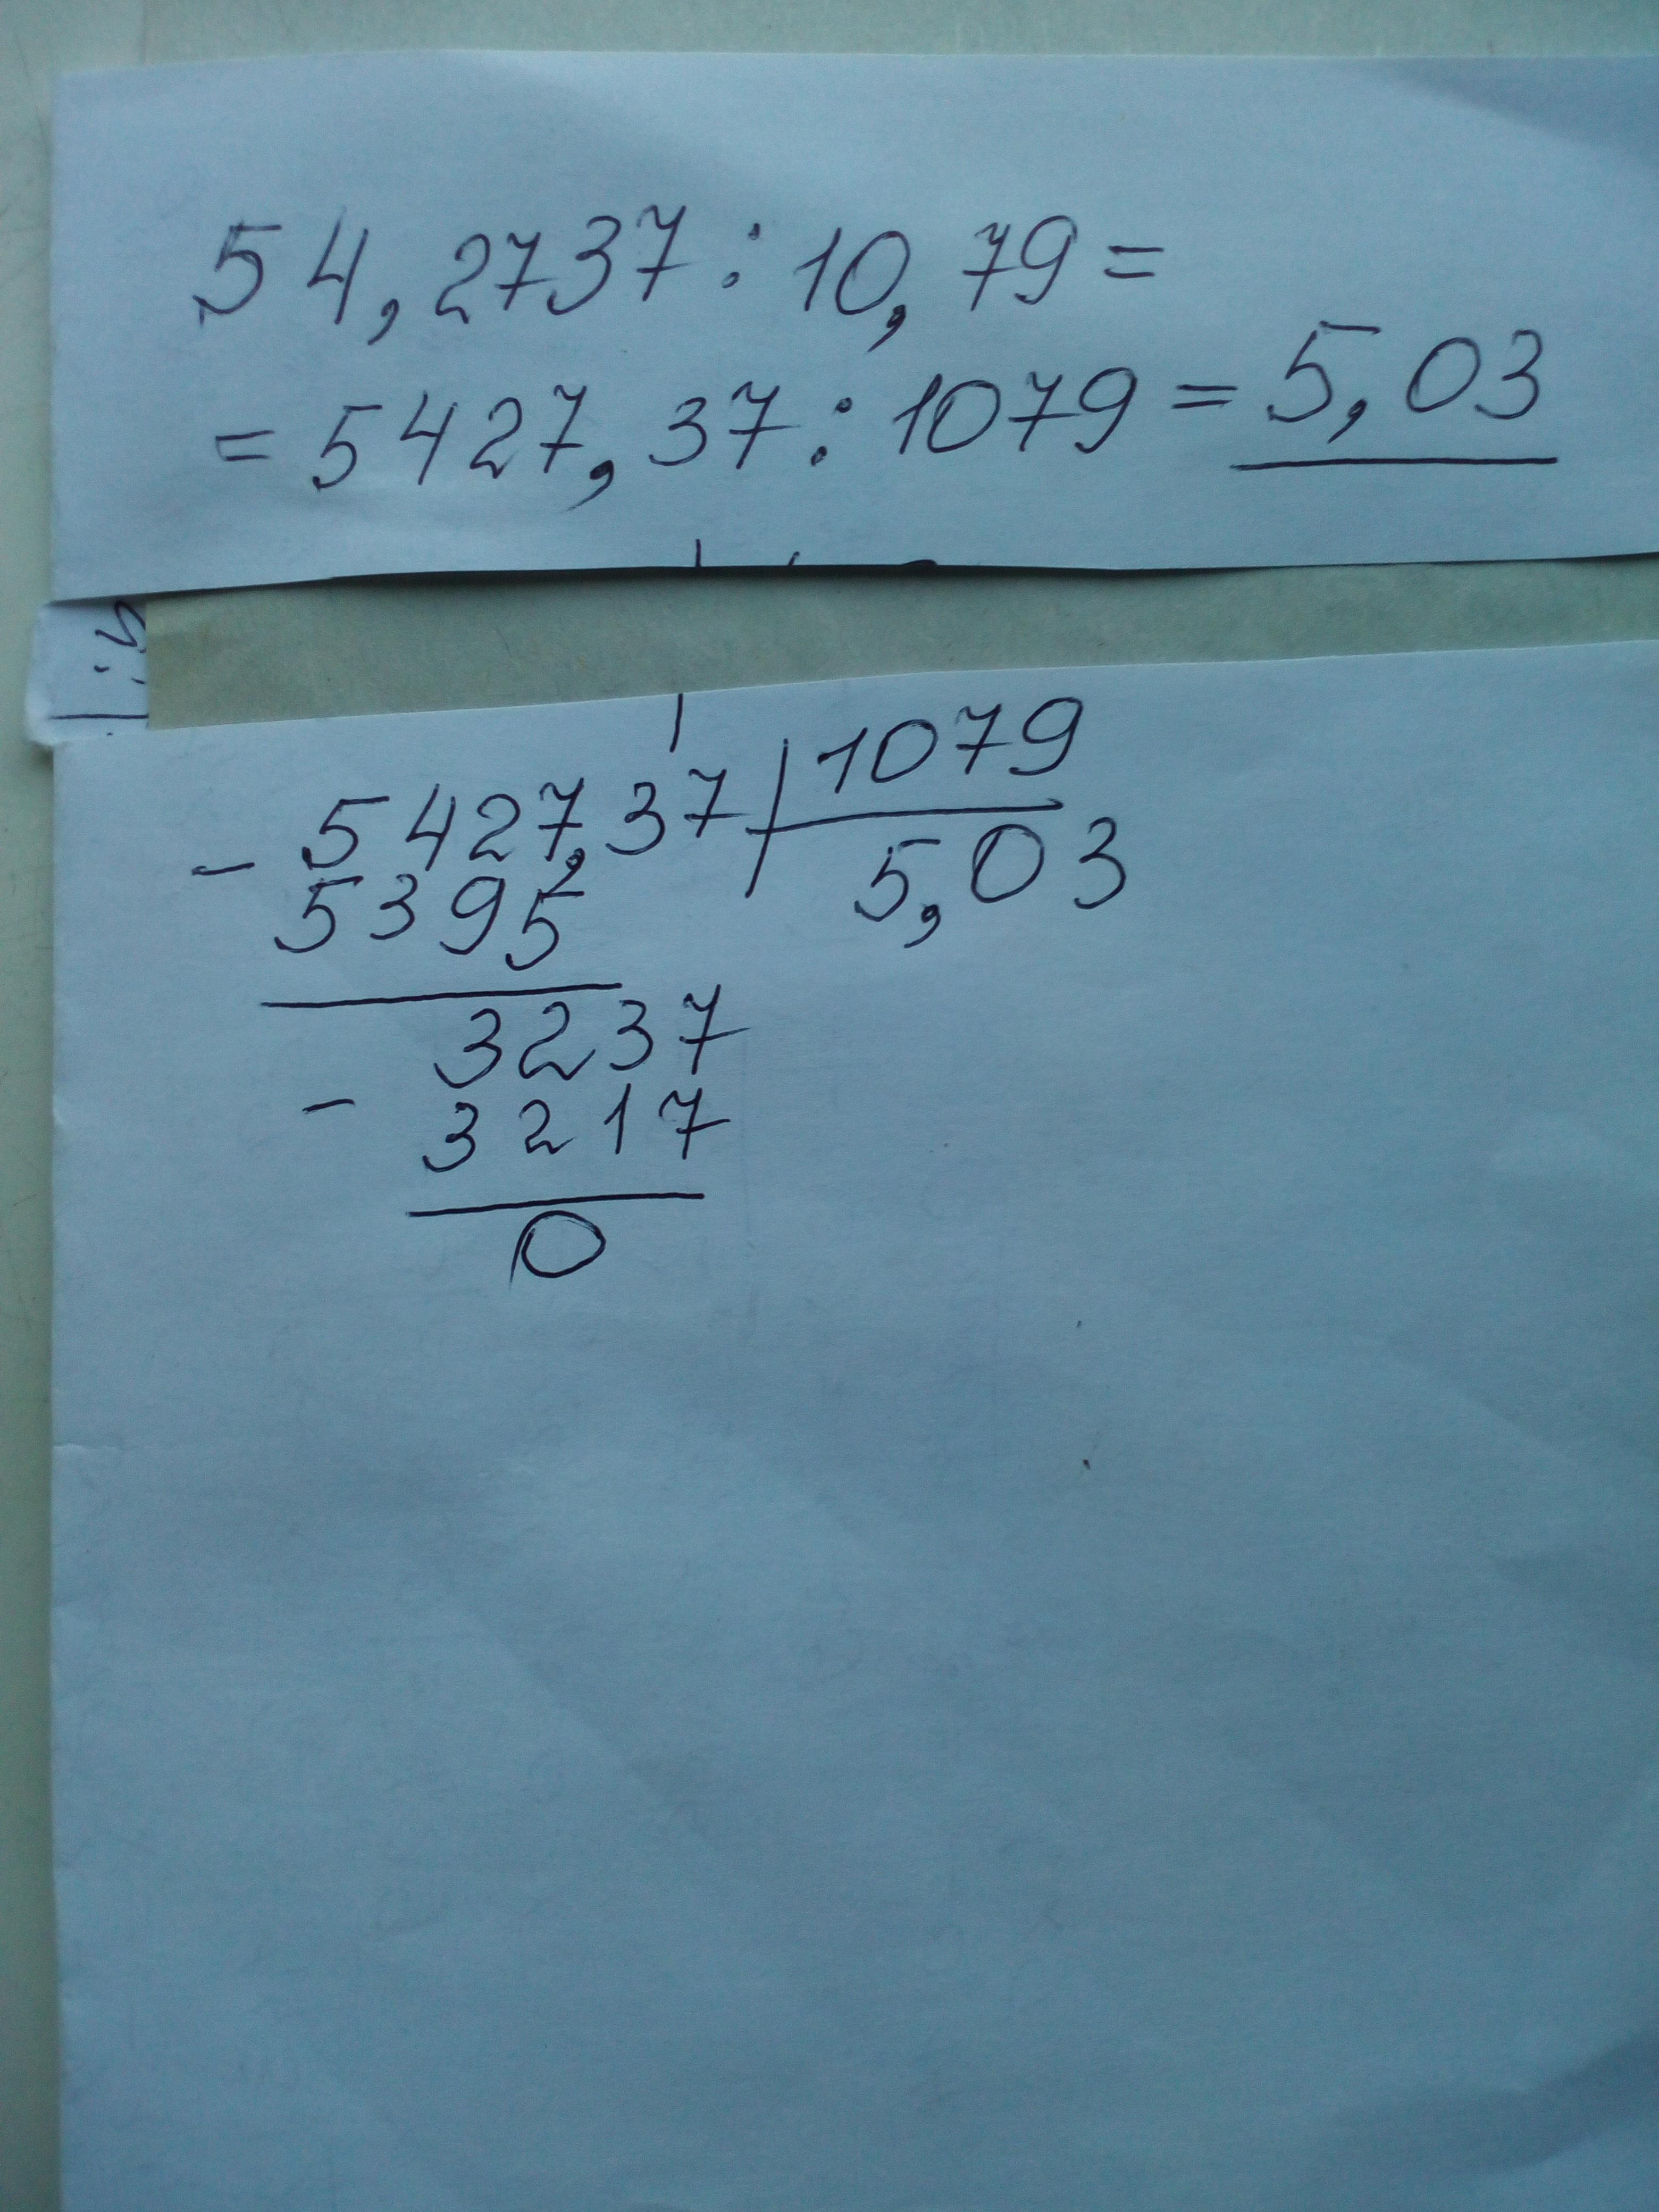 54,2737:10,79=
=5427,37:1079=5,03
-5427,37 | 1079
5395 5,03
3237
- 3217
0